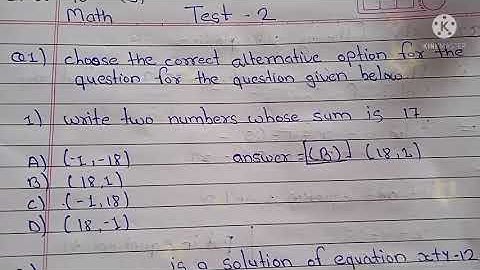 Math Test - 2
Q1) choose the correct alternative option for the
question for the question given below
1) write two numbers whose sum is 17.
A) (-1, -18) answer = (B) (18, 1)
B) (18, 1)
C) (-1, 18)
D) (18, -1)
is a solution of equation x+y=12